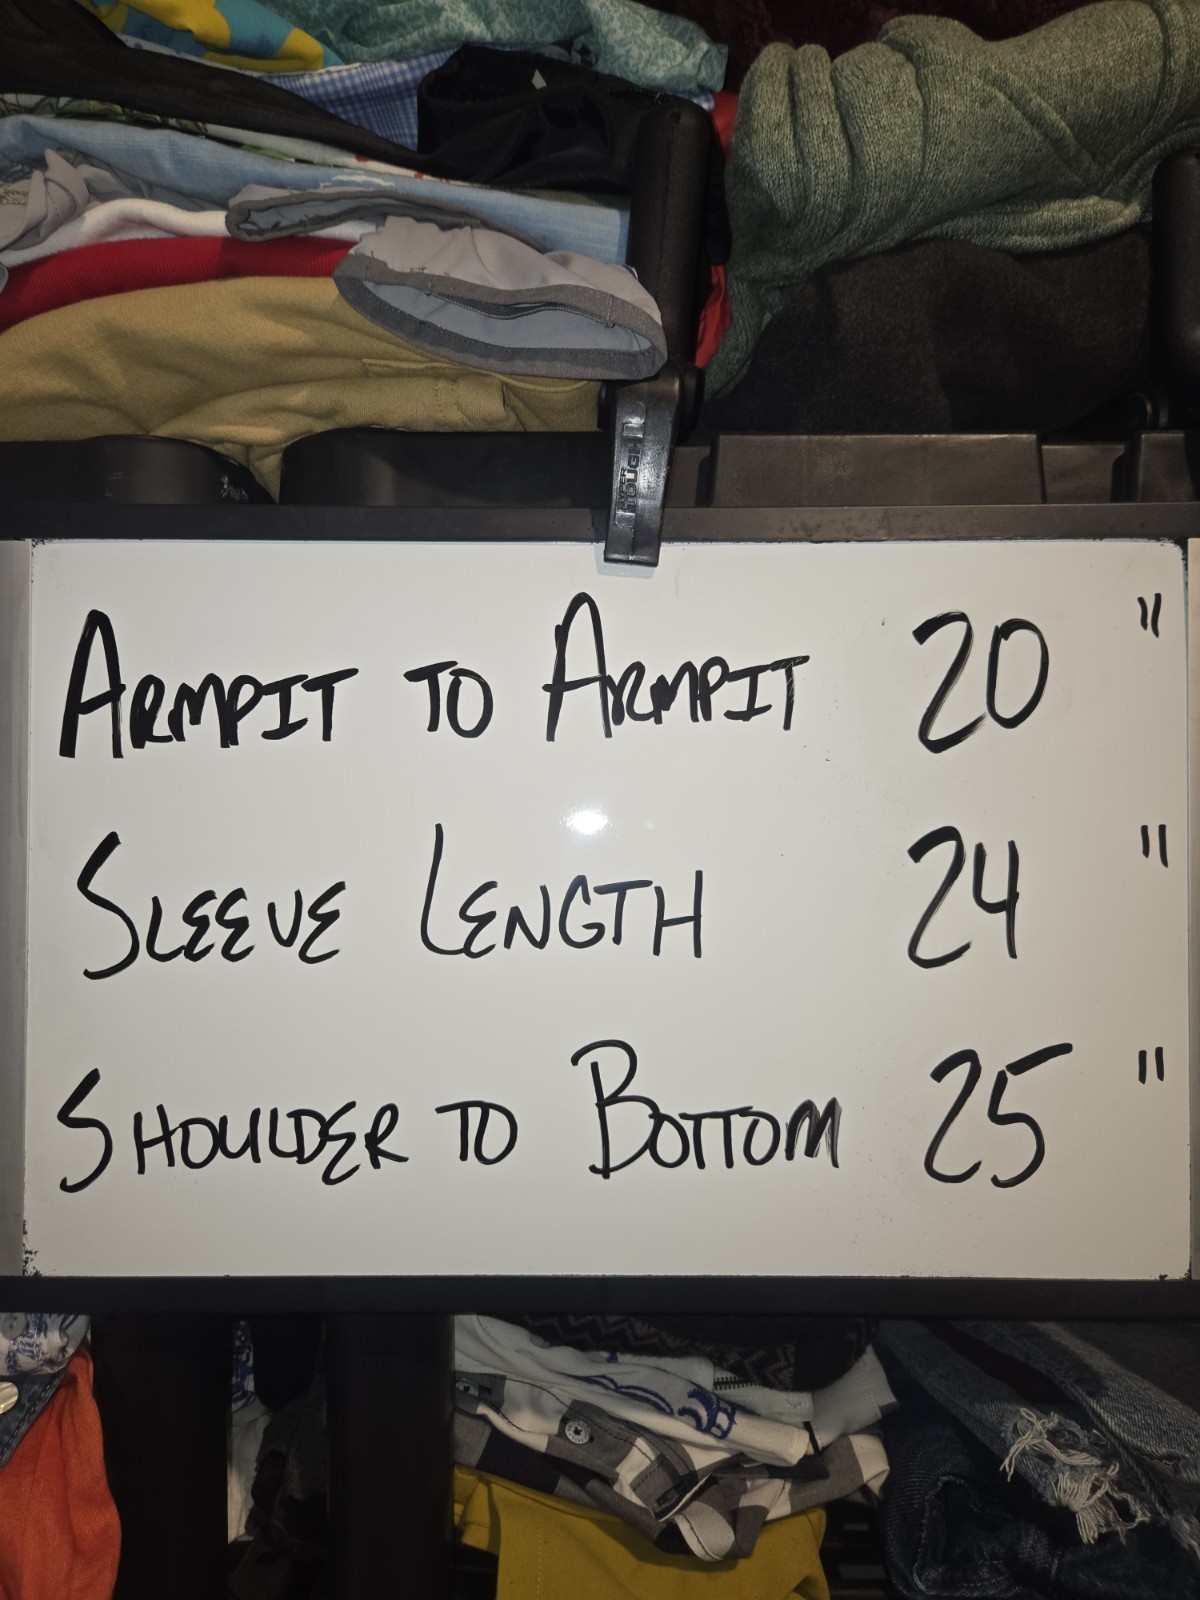 TOUGH
ARMPIT TO ARMPIT 20 "
SLEEVE LENGTH 24 "
SHOULDER TO BOTTOM 25 "